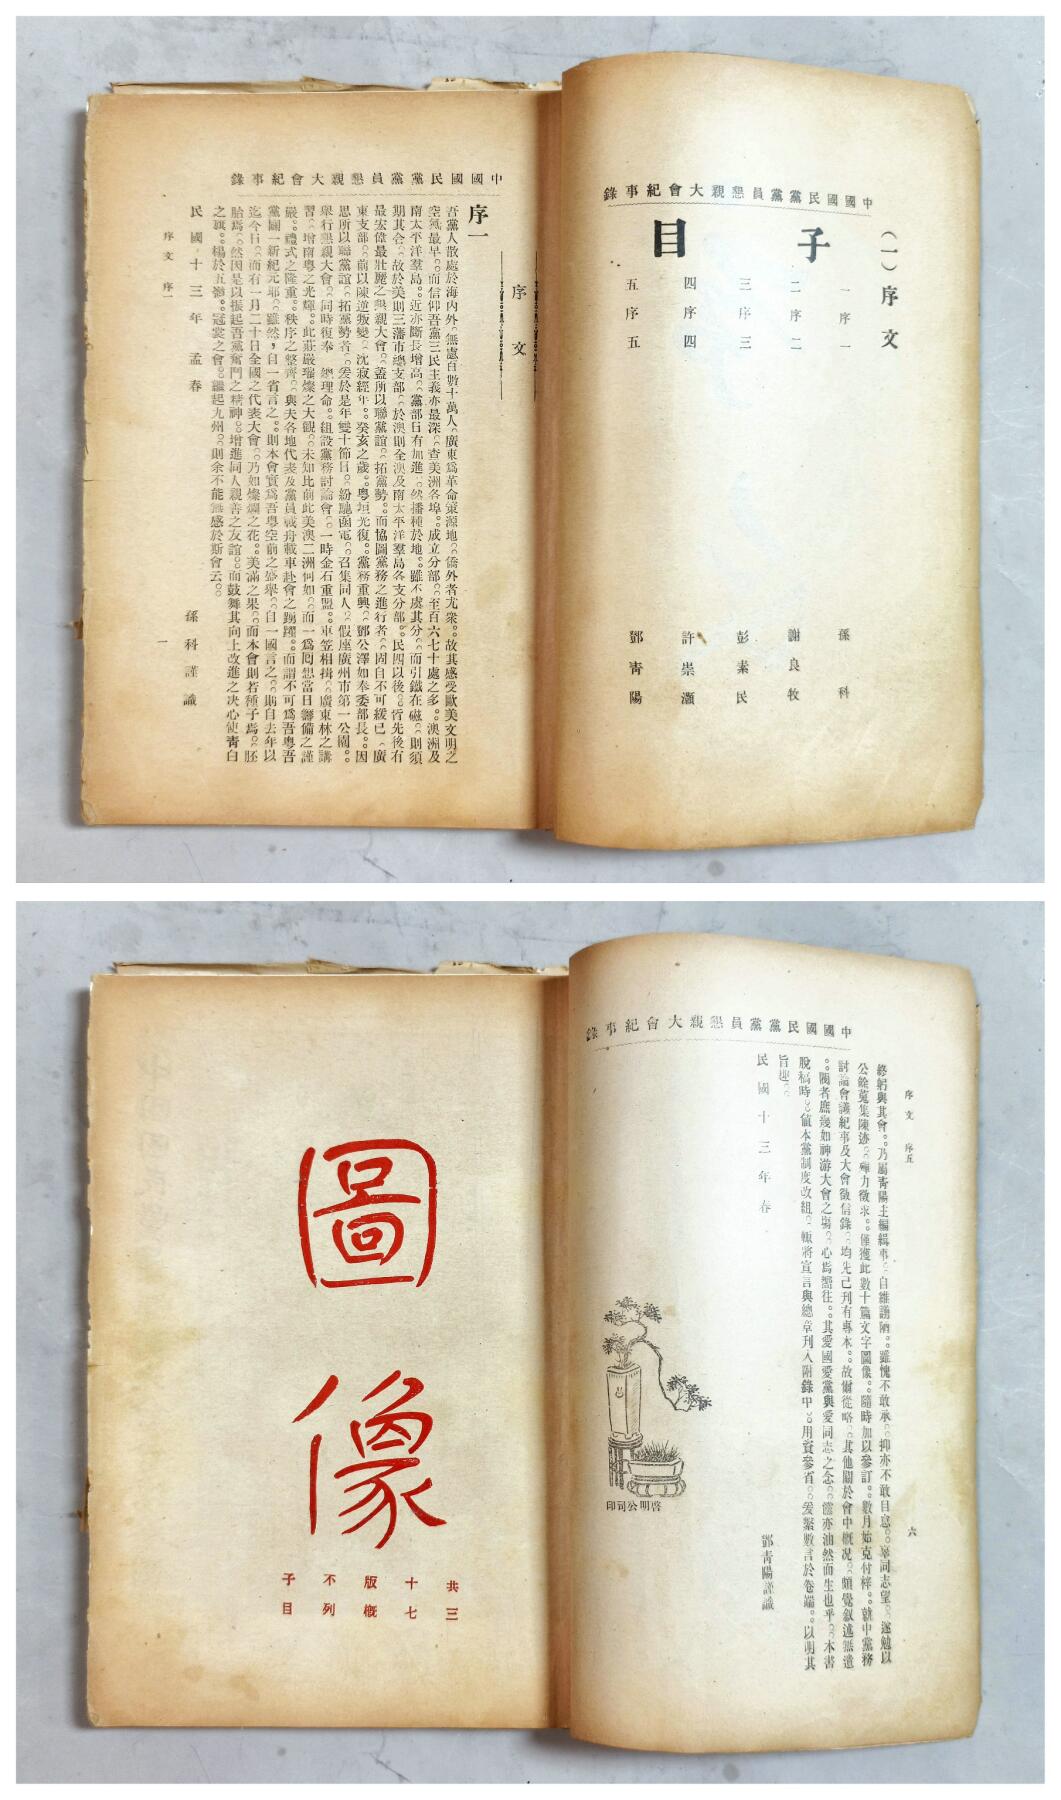 中國國民黨黨員懇親大會紀事錄
子目
(一)序文
一 序一 孫科
二 序二 謝良牧
三 序三 彭素民
四 序四 許崇灝
五 序五 鄧青陽
中國國民黨黨員懇親大會紀事錄
序文
序一
吾黨人散處於海內外。無慮百數十萬人。廣東爲革命策源地。僑外者尤衆。故其感受歐美文明之
空氣最早。而信仰吾黨三民主義亦最深。查美洲各埠。成立分部。至百六七十處之多。澳洲及
南太平洋羣島。近亦斷長增高。黨部日有加進。然播種於地。雖不虞其分。而引鐵在磁。則須
期其合。故於美則三藩市總支部。於澳則全澳及南太平洋羣島各支分部。民四以後。皆先後有
最宏偉最壯麗之懇親大會。蓋所以聯黨誼。拓黨勢。而協圖黨務之進行者。固自不可緩已。廣
東支部。前以陳逆叛變。沈寂經年。癸亥之歲。粵垣光復。黨務重興。鄧公澤如奉委部長。因
思所以聯黨誼。拓黨勢者。爰於是年雙十節日。紛馳函電。召集同人。假座廣州市第一公園。
舉行懇親大會。同時復奉 總理命。組設黨務討論會。一時金石重盟。車笠相揖。廣東林之講
習。增南粵之光輝。此莊嚴璀燦之大觀。未知比前此美澳二洲何如。而一爲囘想當日籌備之謹
嚴。禮式之隆重。秩序之整齊。與夫各地代表及黨員載舟載車赴會之踴躍。而謂不可爲吾粵吾
黨闢一新紀元耶。雖然。自一省言之。則本會實爲吾粵空前之盛舉。自一國言之。則自去年以
迄今日。而有一月二十日全國之代表大會。乃如燦爛之花。美滿之果。而本會則若種子焉。胚
胎焉。然因是以振起吾黨奮鬥之精神。增進同人親善之友誼。而鼓舞其向上改進之决心使靑白
之旗。楊於五嶺。冠裳之會。繼起九州。則余不能無感於斯會云。
民國十三年孟春
孫科謹識
序文 序一
一
中國國民黨黨員懇親大會紀事錄
序文 序五
六
終躬與其會。乃屬青陽主編輯事。自維謭陋。雖愧不敢承。抑亦不敢自息。辜同志望。遂勉以
公餘蒐集陳迹。殫力徵求。僅獲此數十篇文字圖像。隨時加以參訂。數月始克付梓。就中黨務
討論會議紀事及大會徵信錄。均先已刊有專本。故爾從略。其他關於會中概況。頗覺叙述無遺
。閱者庶幾如神游大會之塲。心焉嚮往。其愛國愛黨與愛同志之念。儻亦油然而生也乎。本書
脫稿時。値本黨制度改組。輒將宣言與總章刊入附錄中。用資參省。爰綴數言於卷端。以明其
旨趣。
民國十三年春
鄧青陽謹識
啓明公司印
圖像
共三
十七
版槪
不列
子目